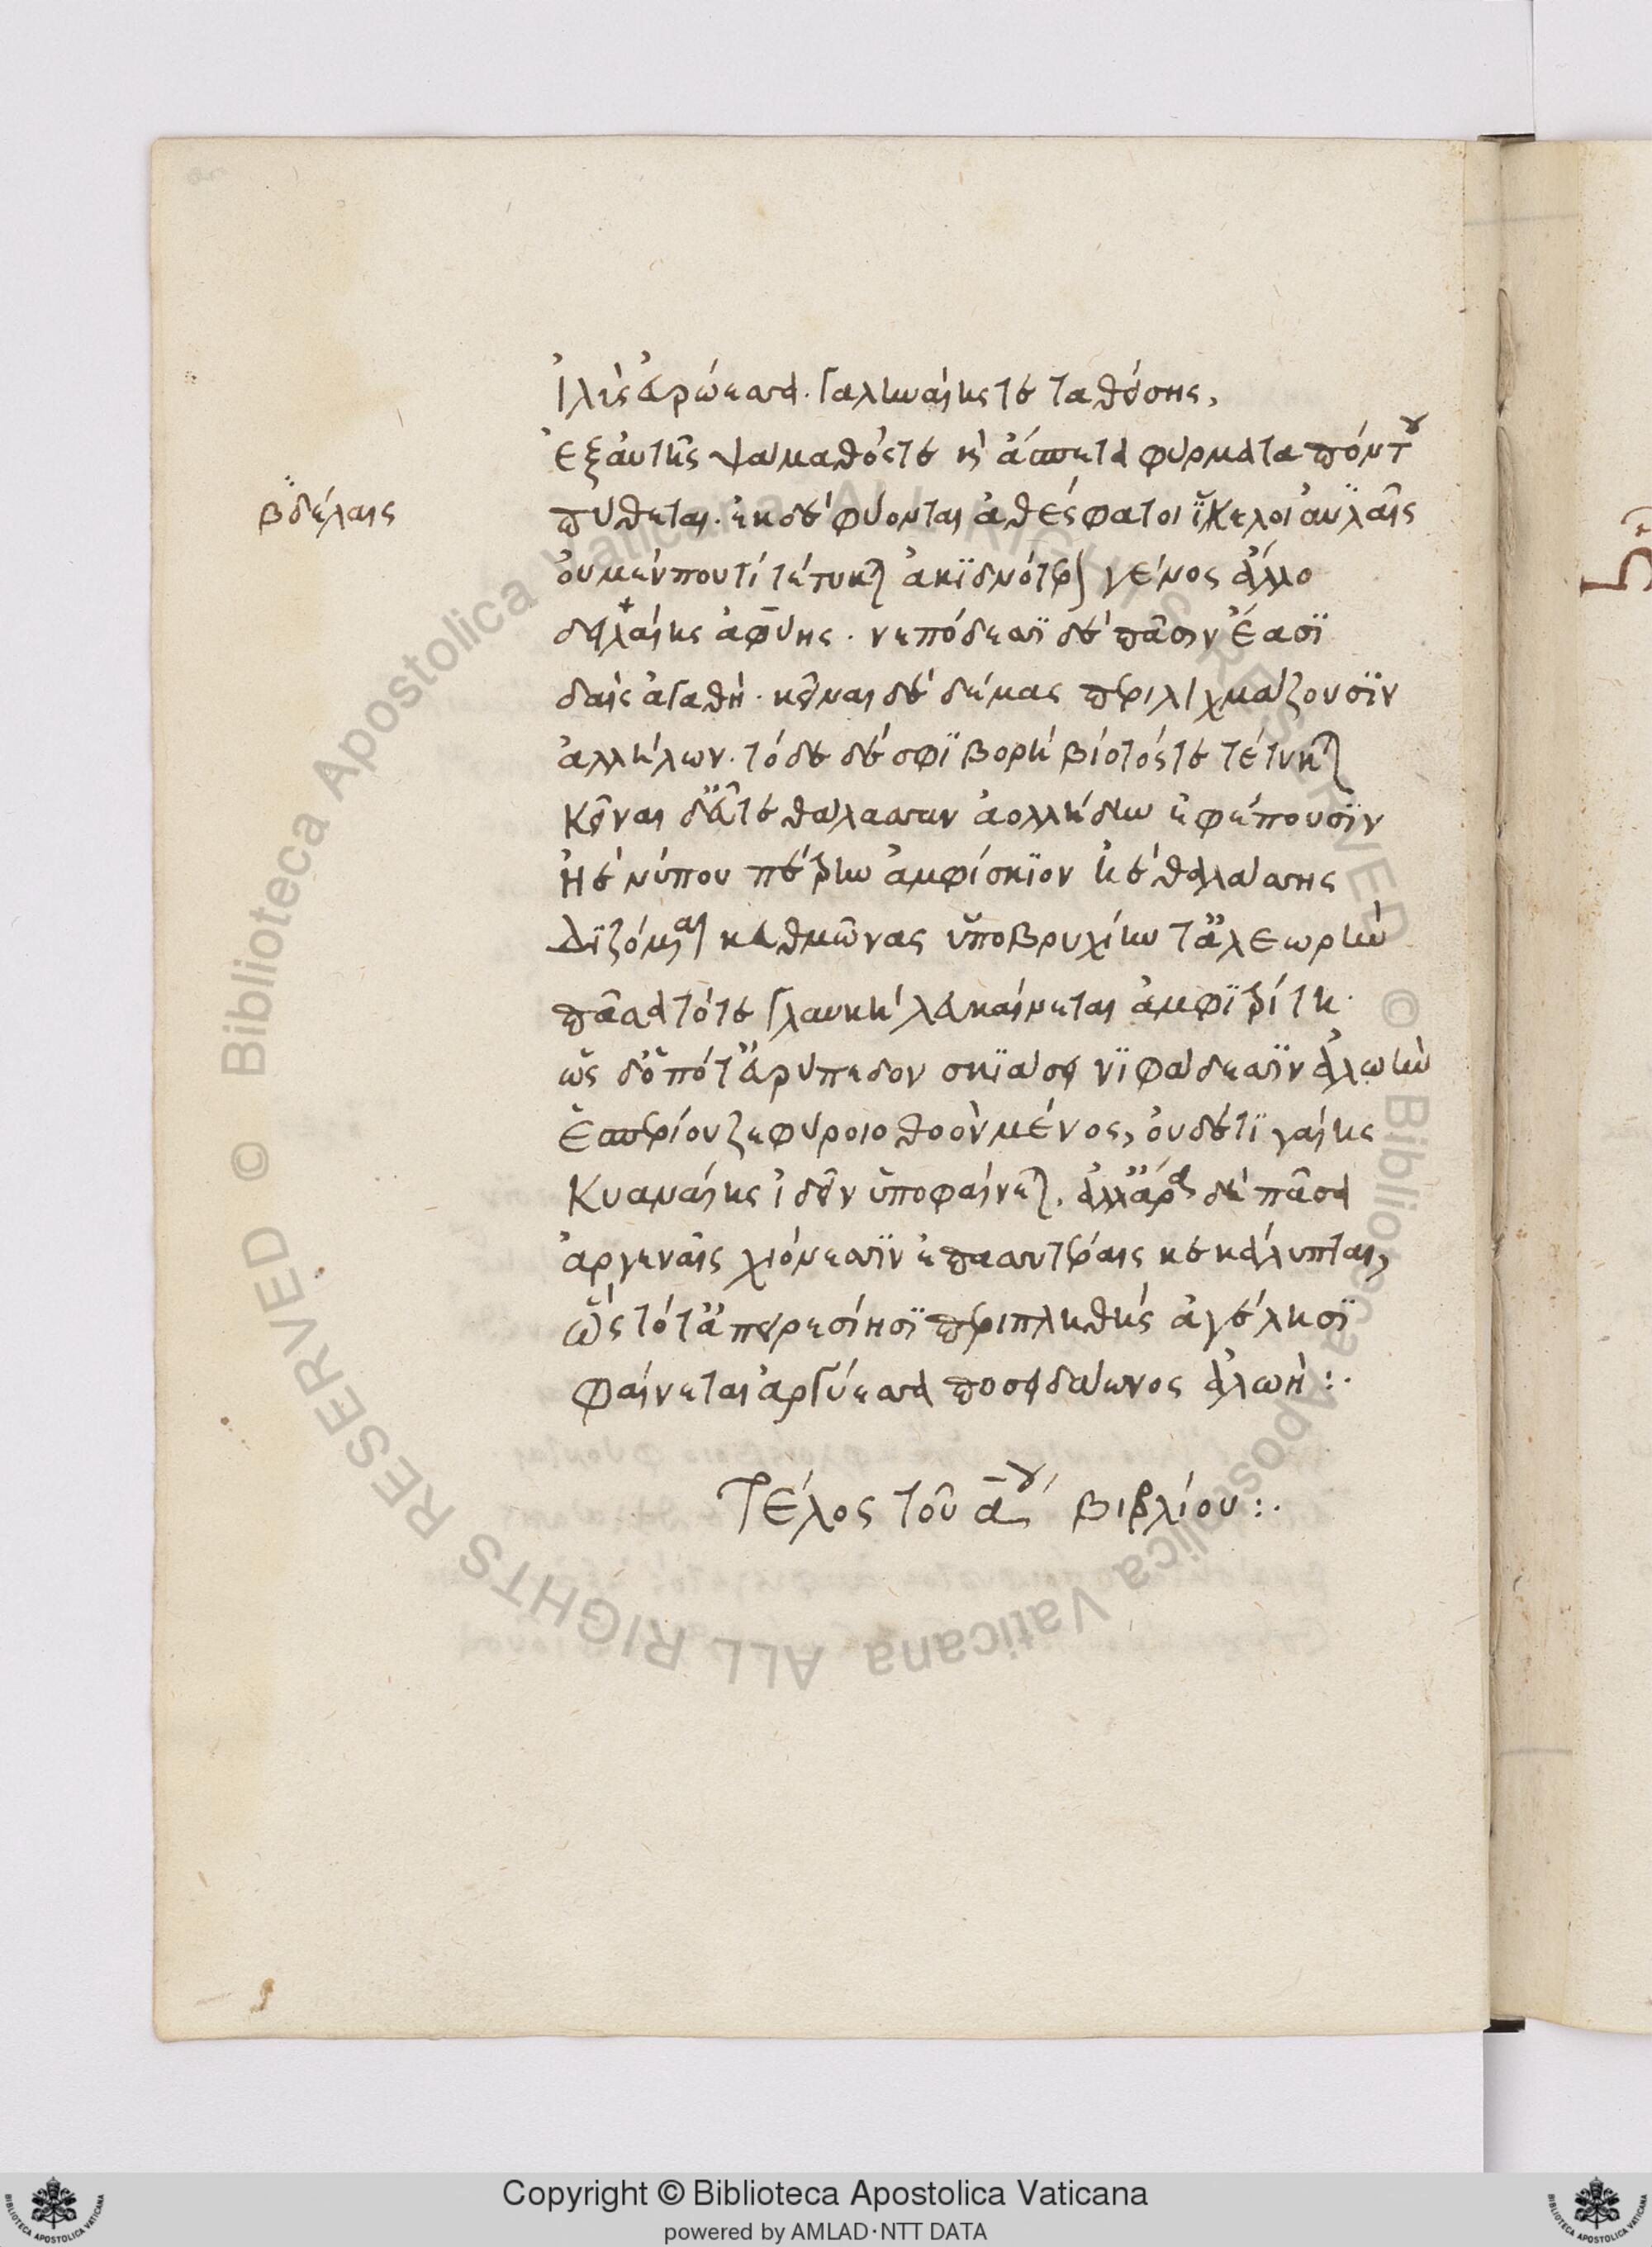 ἰλὺς ἀφρώεσσα. γαληναίης τε ταθείσης,
ἐξ αὐτῆς ψάμαθός τε κὶ ἄσπετα φύρματα πόντου
βδέλαις
πύθεται. ἐκ δὲ φύονται ἀθέσφατοι ἴκελοι αὐλαῖς
οὐ μέν που τί τέτυκται ἀκιδνότερον γένος ἄλλο
δειλαίης ἀφύης. νεπόδεσσι δὲ πᾶσιν ἔασι
δαὶς ἀγαθή. κεῖναι δὲ δέμας περιλιχμάζουσιν
ἀλλήλων. τόδε δέ σφι βορὴ βίοτός τε τέτυκται
κεῖναι δ' ἅτε θάλασσαν ἀολλήδην ἐφέπουσιν
ἠέ νύ που πέτρην ἀμφίσκιον ἠὲ θαλάσσης
διζόμεναι κευθμῶνας ὑποβρυχίην τ' ἀλεωρὴν
πᾶσα τότε γλαυκὴ λευκαίνεται ἀμφιτρίτη.
ὡς δ' ὁπότ' εὐρύπεδον σκιάσει νιφάδεσσιν ἀλωὴν
ἑσπερίου ζεφύροιο θοὸν μένος, οὐδέ τι γαίης
κυανέης ἰδεῖν ὑποφαίνεται. ἀλλ' ἄρα δὴ πᾶσα
ἀργεναῖς χιόνεσσιν ἐπασσυτέραις κεκάλυπται,
ὣς τότ' ἀπειρεσίησι περιπληθὴς ἀγέλησι
φαίνεται ἀργύεσσα ποσειδάωνος ἀλωή:.
Τέλος τοῦ αου βιβλίου:.
Copyright © Biblioteca Apostolica Vaticana
powered by AMLAD·NTT DATA